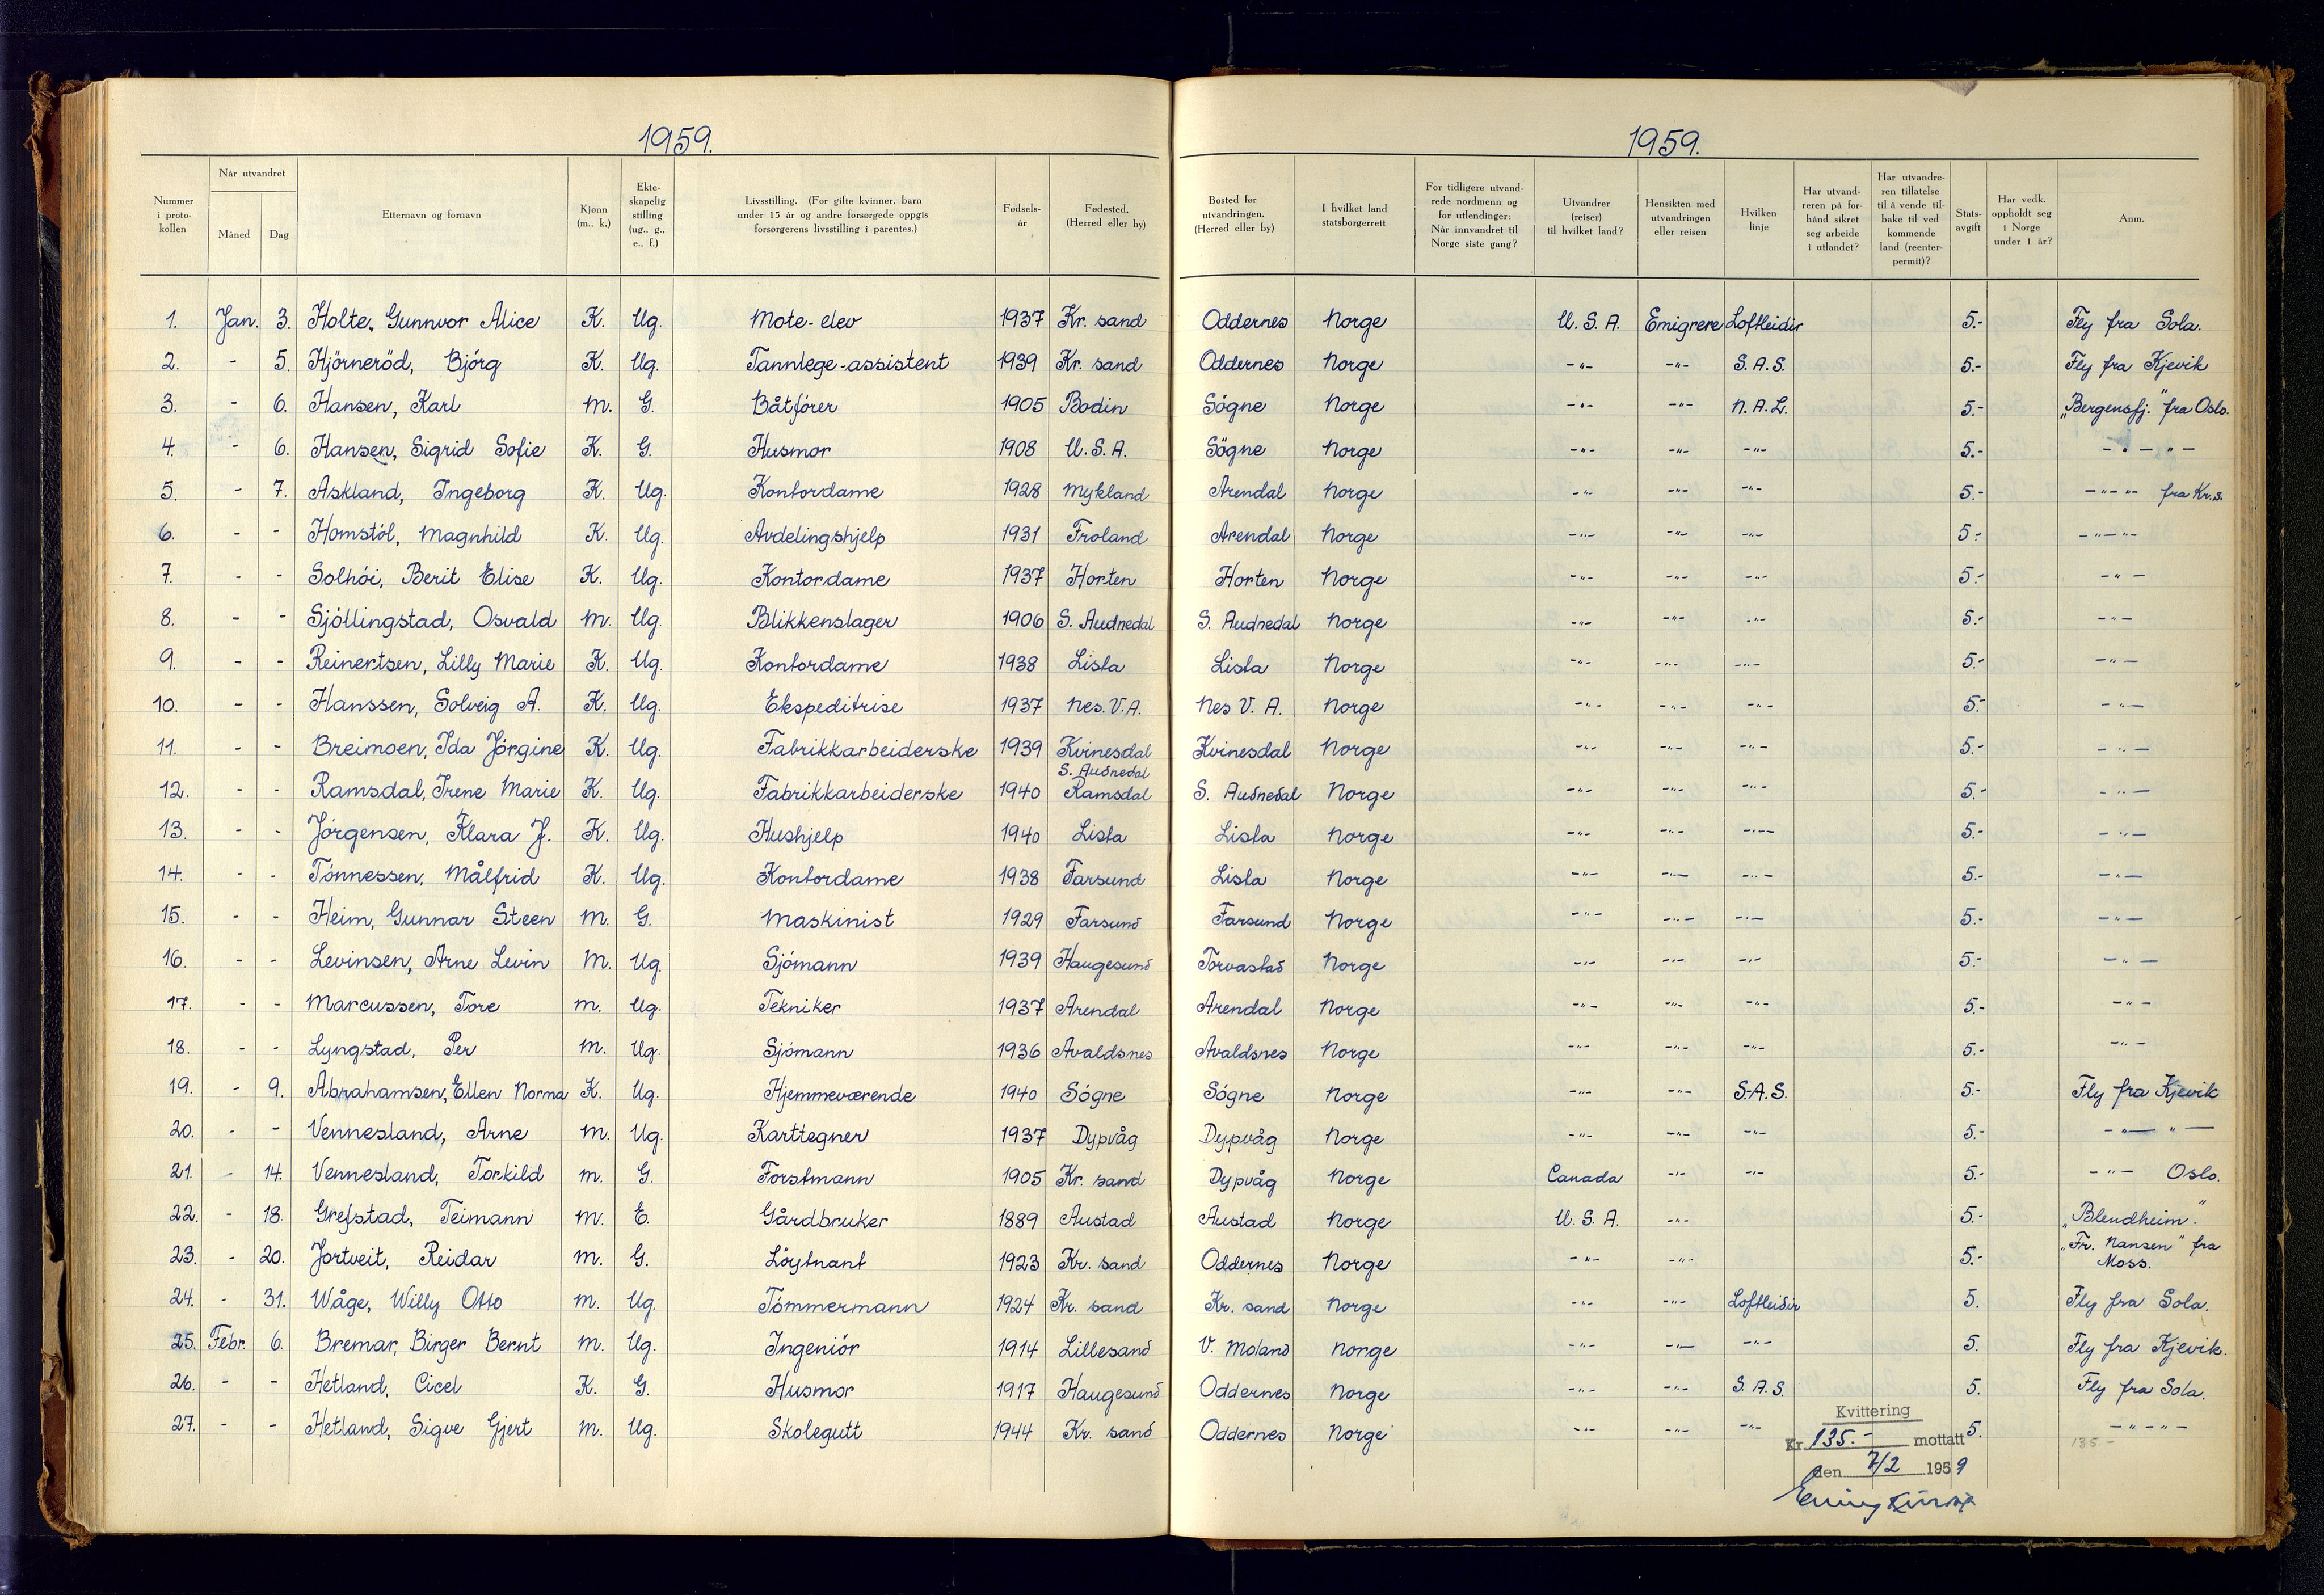 1959.
1959.
Nummer i proto- kollen
Når utvandret
Måned
Dag
Etternavn og fornavn
Kjønn (m., k.)
Ekte- skapelig stilling (ug., g., e., f.)
Livsstilling. (For gifte kvinner, barn under 15 år og andre forsørgede oppgis forsørgerens livsstilling i parentes.)
Fødsels- år
Fødested. (Herred eller by)
Bosted før utvandringen. (Herred eller by)
I hvilket land statsborgerrett
For tidligere utvand- rede nordmenn og for utlendinger: Når innvandret til Norge siste gang?
Utvandrer (reiser) til hvilket land?
Hensikten med utvandringen eller reisen
Hvilken linje
Har utvand- reren på for- hånd sikret seg arbeide i utlandet?
Har utvandre- ren tillatelse til å vende til- bake til ved kommende land (reenter- permit)?
Stats- avgift
Har vedk. oppholdt seg i Norge under 1 år?
Anm.
1. Jan. 3. Holte, Gunnvor Alice K. Ug. Mote-elev 1937 Kr. sand Oddernes Norge U.S.A. Emigrere Loftleidir 5.- Fly fra Sola.
2. - 5. Hjörneröd, Björg K. Ug. Tannlege-assistent 1939 Kr. sand Oddernes Norge -"- -"- S.A.S. 5.- Fly fra Kjevik
3. - 6. Hansen, Karl M. G. Båtförer 1905 Bodin Sögne Norge -"- -"- N.A.L. 5.- "Bergensfj." fra Oslo.
4. - 6. Hansen, Sigrid Sofie K. G. Husmor 1908 U.S.A. Sögne Norge -"- -"- -"- 5.- -"- -"-
5. - 7. Askland, Ingeborg K. Ug. Kontordame 1928 Mykland Arendal Norge -"- -"- -"- 5.- -"-"- fra Kr.s.
6. - - Homstöl, Magnhild K. Ug. Avdelingshjelp 1931 Froland Arendal Norge -"- -"- -"- 5.- -"-"-
7. - - Solhöi, Berit Elise K. Ug. Kontordame 1937 Horten Horten Norge -"- -"- -"- 5.- -"-
8. - - Sjöllingstad, Osvald M. Ug. Blikkenslager 1906 S. Audnedal S. Audnedal Norge -"- -"- -"- 5.- -"-
9. - - Reinertsen, Lilly Marie K. Ug. Kontordame 1938 Lista Lista Norge -"- -"- -"- 5.- -"-
10. - - Hanssen, Solveig A. K. Ug. Ekspeditrise 1937 Nes. V.A. Nes V. A. Norge -"- -"- -"- 5.- -"-
11. - - Breimoen, Ida Jörgine K. Ug. Fabrikkarbeiderske 1939 Kvinesdal Kvinesdal Norge -"- -"- -"- 5.- -"-
S. Audnedal
12. - - Ramsdal, Irene Marie K. Ug. Fabrikkarbeiderske 1940 Ramsdal S. Audnedal Norge -"- -"- -"- 5.- -"-
13. - - Jörgensen, Klara J. K. Ug. Hushjelp 1940 Lista Lista Norge -"- -"- -"- 5.- -"-
14. - - Tönnessen, Målfrid K. Ug. Kontordame 1938 Farsund Lista Norge -"- -"- -"- 5.- -"-
15. - - Heim, Gunnar Steen M. G. Maskinist 1929 Farsund Farsund Norge -"- -"- -"- 5.- -"-
16. - - Levinsen, Arne Levin M. Ug. Sjömann 1939 Haugesund Torvastad Norge -"- -"- -"- 5.- -"-
17. - - Marcussen, Tore M. Ug. Tekniker 1937 Arendal Arendal Norge -"- -"- -"- 5.- -"-
18. - - Lyngstad, Per M. Ug. Sjömann 1936 Avaldsnes Avaldsnes Norge -"- -"- -"- 5.- -"-
19. - 9. Abrahamsen, Ellen Norma K. Ug. Hjemmeværende 1940 Sögne Sögne Norge -"- -"- S.A.S. 5.- Fly fra Kjevik
20. - - Vennesland, Arne M. Ug. Karttegner 1937 Dypvåg Dypvåg Norge -"- -"- -"- 5.- -"- -"-
21. - 14. Vennesland, Torkild M. G. Forstmann 1905 Kr. sand Dypvåg Norge Canada -"- -"- 5.- -"- Oslo.
22. - 18. Grefstad, Teimann M. E. Gårdbruker 1889 Austad Austad Norge U.S.A. -"- 5.- "Blendheim".
23. - 20. Jortveit, Reidar M. G. Löytnant 1923 Kr. sand Oddernes Norge -"- -"- 5.- "Fr. Nansen" fra Moss.
24. - 31. Wåge, Willy Otto M. Ug. Tömmermann 1924 Kr. sand Kr. sand Norge -"- -"- Loftleidir 5. Fly fra Sola.
25. Febr. 6. Bremar, Birger Bernt M. Ug. Ingeniör 1914 Lillesand V. Moland Norge -"- -"- -"- 5. Fly fra Kjevik.
26. - - Hetland, Cicel K. G. Husmor 1917 Haugesund Oddernes Norge -"- -"- S.A.S. 5. Fly fra Sola.
27. - - Hetland, Sigve Gjert M. Ug. Skolegutt 1944 Kr. sand Oddernes Norge -"- -"- -"- 5. -"-"-
Kvittering
Kr. 135.- mottatt 135-
den 7/2 1959